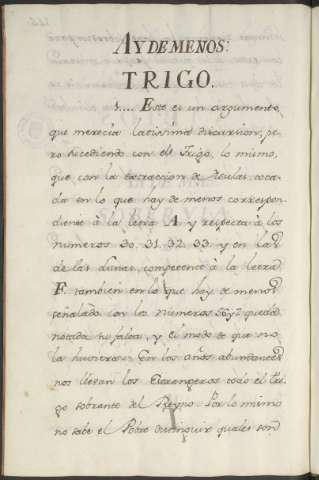 AY DE MENOS:
TRIGO.
1.... Este es un argumento
que merecia latissima discursion, pe
ro sucediendo con el Trigo, lo mismo,
que con la extraccion de toca
da en lo que hay de menos correspon
diente à la letra A y respecta à los
numeros 30. 31. 32. 33. y en la
de las Lanas, competente à la letra
F. tambien en lo que hay de menos
señalado con los numeros queda
notada su falta, y el modo de que no
la huviera. Por los años abundantes
nos llevan los Estrangeros todo el tri
go sobrante del Reyno. Por lo mismo
no sabe el Pobre distinguir quales son